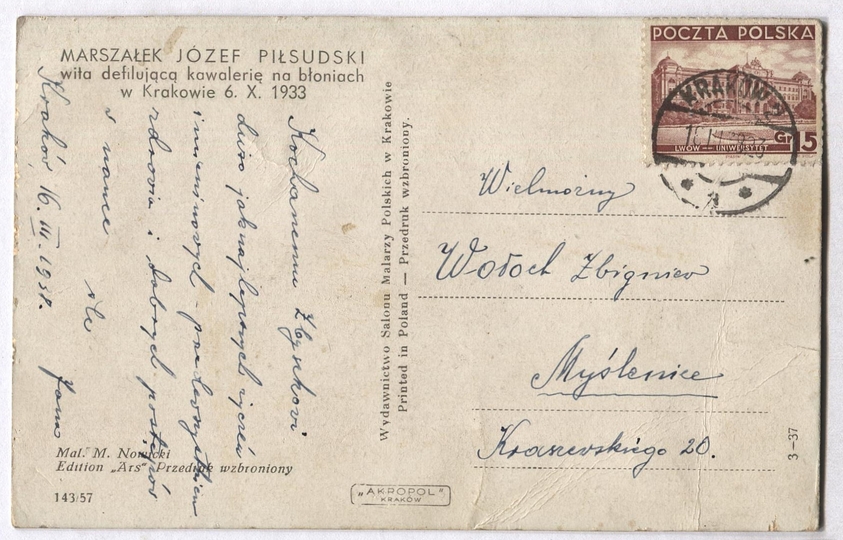 MARSZAŁEK JÓZEF PIŁSUDSKI
wita defilującą kawalerię na błoniach
w Krakowie 6. X. 1933
Kochanemu Zbyszkowi
dużo jak najlepszych życzeń
imieninowych - przede wszystkiem
zdrowia i dobrych postępów
w nauce
śle
Kraków 16. III. 1938.
Mal. M. Nowicki
Edition „Ars" Przedruk wzbroniony
143/57
Wydawnictwo Salonu Malarzy Polskich w Krakowie
Printed in Poland — Przedruk wzbroniony.
„AKROPOL"
KRAKÓW
POCZTA POLSKA
Gr 15
LWÓW — UNIWERSYTET
KRAKÓW 2
Wielmożny
Wołoch Zbigniew
Myślenice
Kraszewskiego 20.
3-37